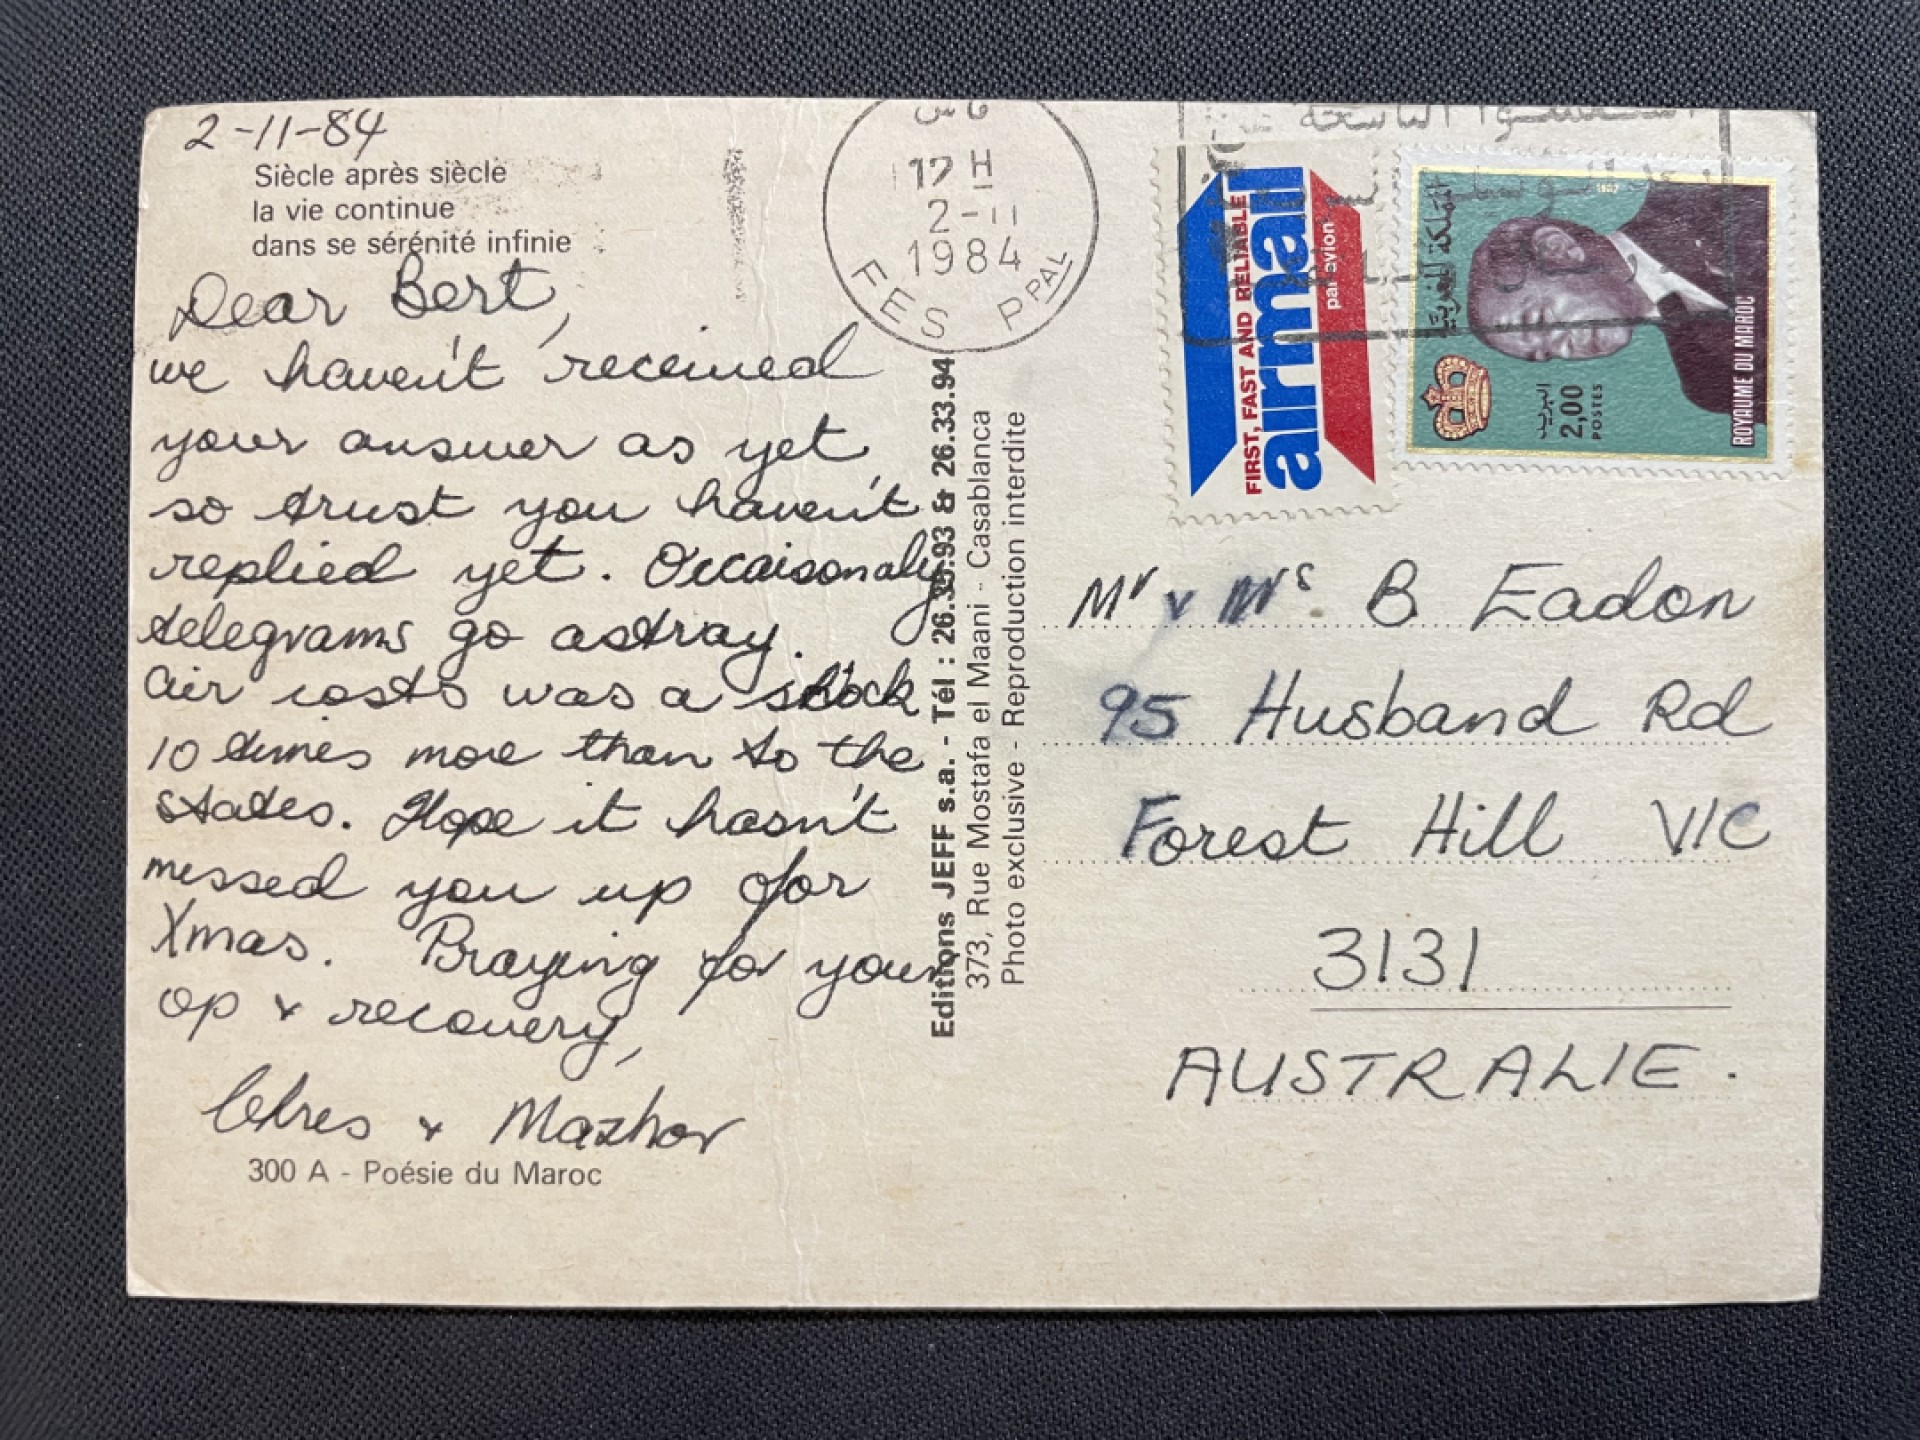 2-11-84
Siècle après siècle
la vie continue
dans se sérénité infinie
Dear Bert,
we haven't received
your answer as yet,
so trust you haven't
replied yet. Occaisonaly
telegrams go astray.
Air costs was a shock
10 times more than to the
states. Hope it hasn't
messed you up for
Xmas. Praying for your
op & recovery,
Chres & Mazhor
300 A - Poésie du Maroc
Editions JEFF s.a. - Tél : 26.33.93 & 26.33.94
373, Rue Mostafa el Maani - Casablanca
Photo exclusive - Reproduction interdite
فاس
12 H
2-11
1984
FES PPAL
FIRST, FAST AND RELIABLE
airmail
par avion
المملكة المغربية
1982
البريد
2,00
POSTES
ROYAUME DU MAROC
Mr & Mrs B Eadon
95 Husband Rd
Forest Hill VIC
3131
AUSTRALIE.